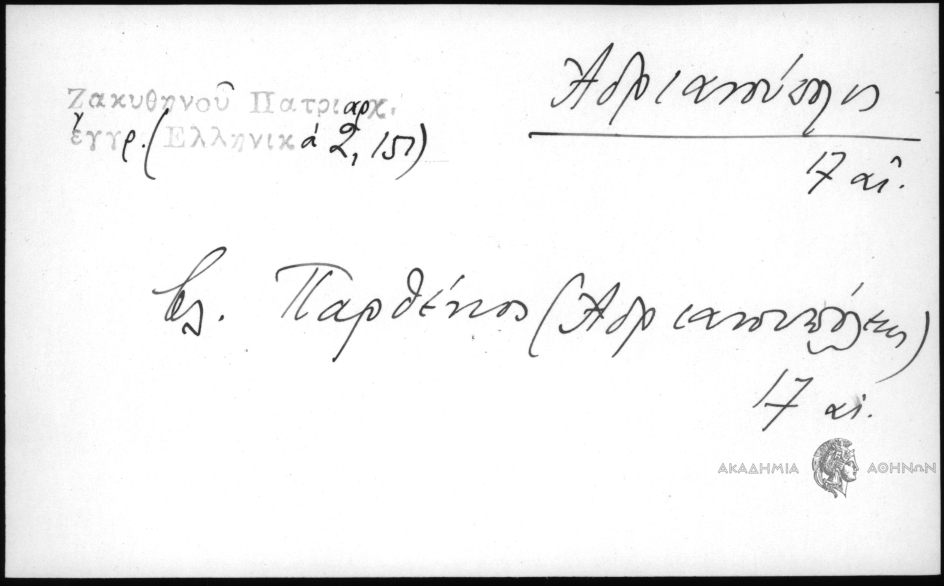 Ζακυθηνοῦ Πατριαρχ.
ἐγγρ. (Ἑλληνικά 2, 151)
Ἀδριανούπολις
17 αἰ.
βλ. Παρθένιος (Ἀδριανουπόλεως)
17 αἰ.
ΑΚΑΔΗΜΙΑ ΑΘΗΝΩΝ